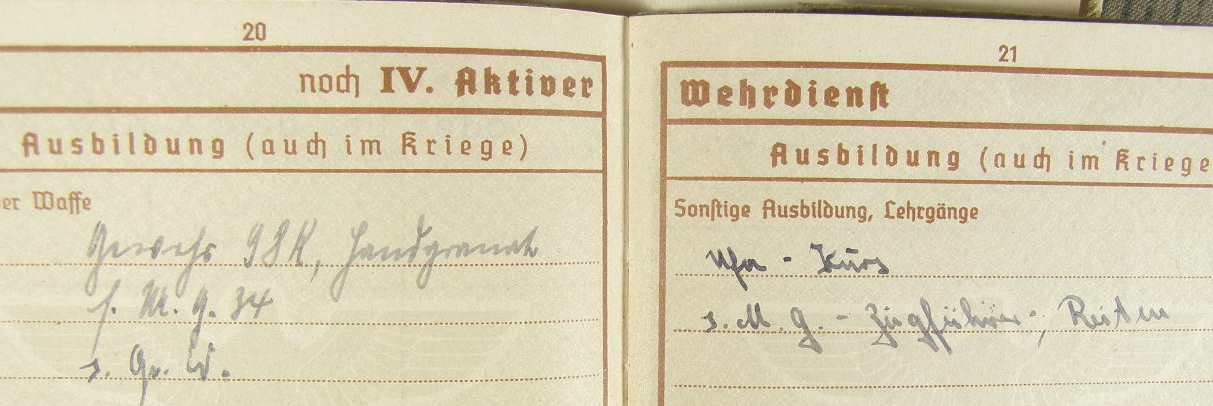 20
noch IV. Aktiver
Ausbildung (auch im Kriege)
er Waffe
Gewehr 98k, Handgranate
s. M. G. 34
s. Gr. W.
21
Wehrdienst
Ausbildung (auch im Kriege
Sonstige Ausbildung, Lehrgänge
Ufa - Kurs
s. M. G. - Zugführer, Reiten